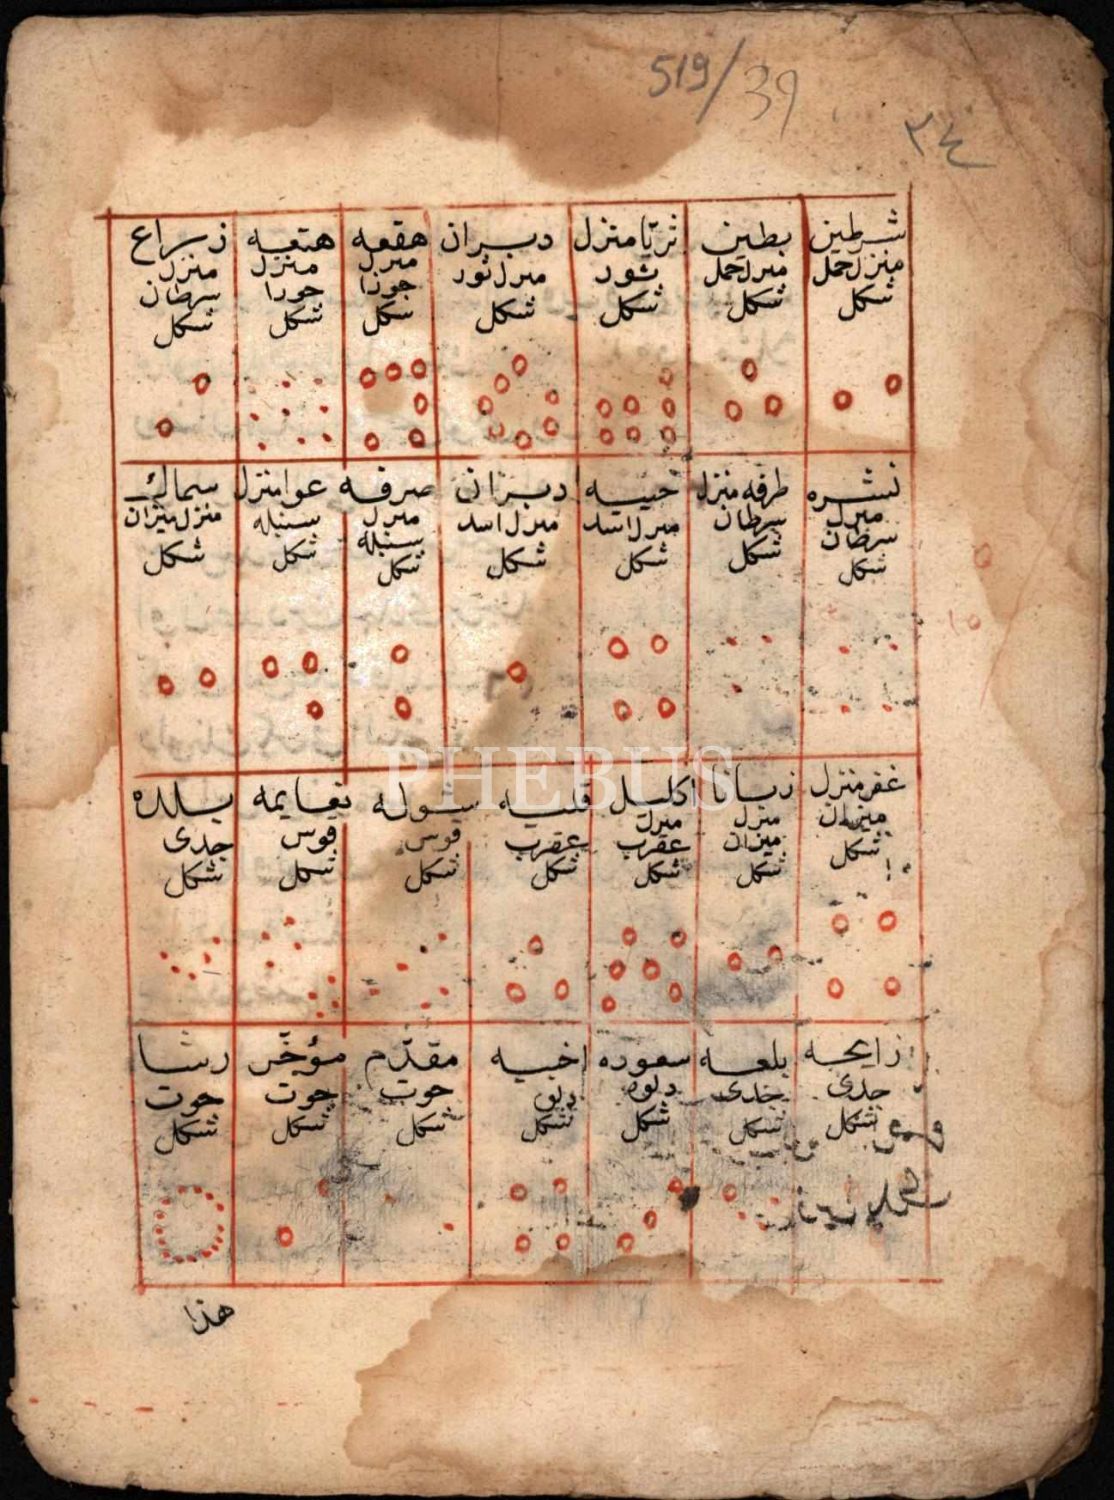 519/39
٢٤
شرطین
منزل حمل
شکل
بطین
منزل حمل
شکل
ثریا منزل
ثور
شکل
دبران
منزل ثور
شکل
هقعه
منزل
جوزا
شکل
هنعه
منزل
جوزا
شکل
ذراع
منزل
سرطان
شکل
نثره
منزل
سرطان
شکل
طرفه منزل
سرطان
شکل
جبهه
منزل اسد
شکل
دبران
منزل اسد
شکل
صرفه
منزل
سنبله
شکل
عوا منزل
سنبله
شکل
سماك
منزل میزان
شکل
غفر منزل
میزان
شکل
زبانا
منزل
میزان
شکل
اکلیل
منزل
عقرب
شکل
قلبه
عقرب
شکل
شوله
قوس
شکل
نعایمه
قوس
شکل
بلده
جدی
شکل
زابحه
جدی
شکل
بلعه
جدی
شکل
سعوده
دلو
شکل
اخبیه
دلو
شکل
مقدّم
حوت
شکل
مؤخّر
حوت
شکل
رشا
حوت
شکل
هذا
PHEBUS